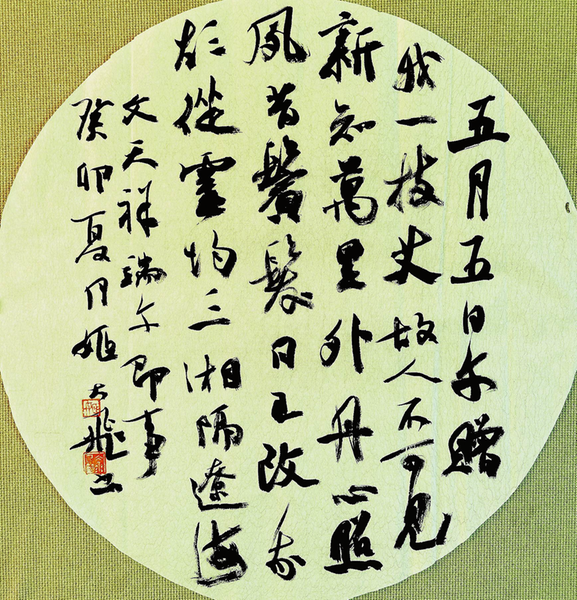 五月五日午贈
我一枝艾故人不可見
新知萬里外丹心照
夙昔鬢髮日已改我
欲從靈均三湘隔遼海
文天祥端午即事
癸卯夏月姬大飛书